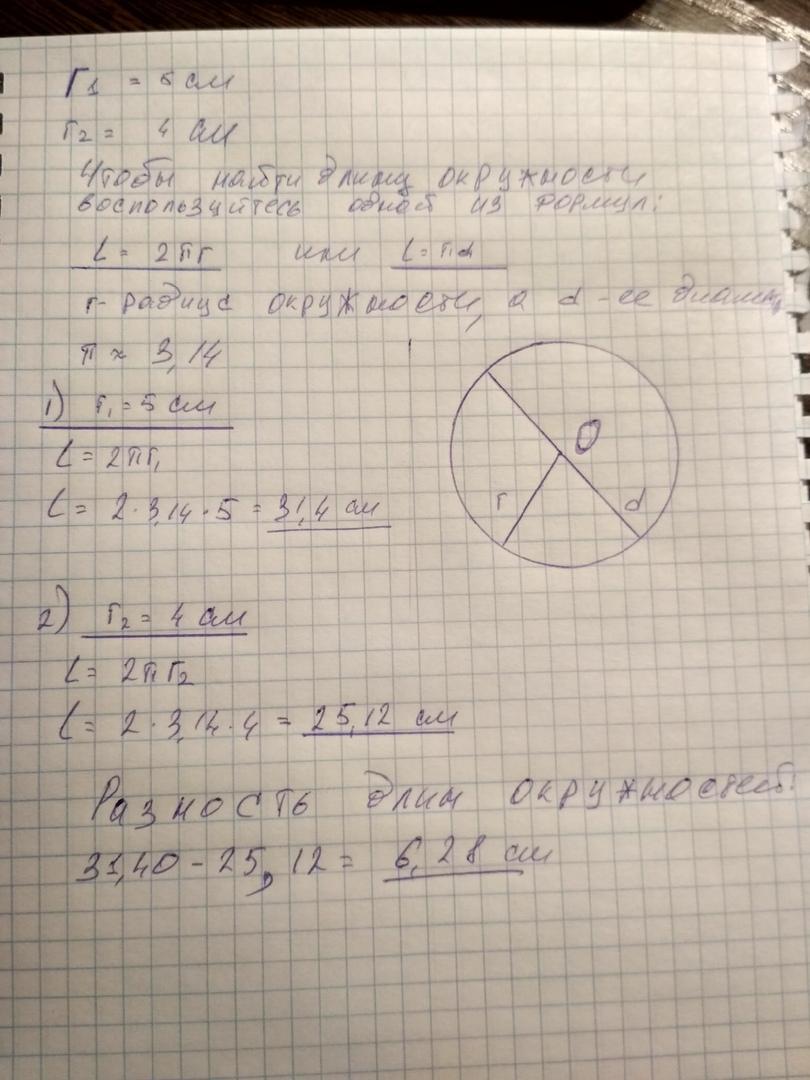 r₁ = 5 см
r₂ = 4 см
Чтобы найти длину окружности
воспользуйтесь одной из формул:
L = 2πr или L = πd
r - радиус окружности, а d - ее диаметр
π ≈ 3,14
1) r₁ = 5 см
L = 2πr₁
L = 2 · 3,14 · 5 = 31,4 см
O
r d
2) r₂ = 4 см
L = 2πr₂
L = 2 · 3,14 · 4 = 25,12 см
Разность длин окружностей:
31,40 - 25,12 = 6,28 см